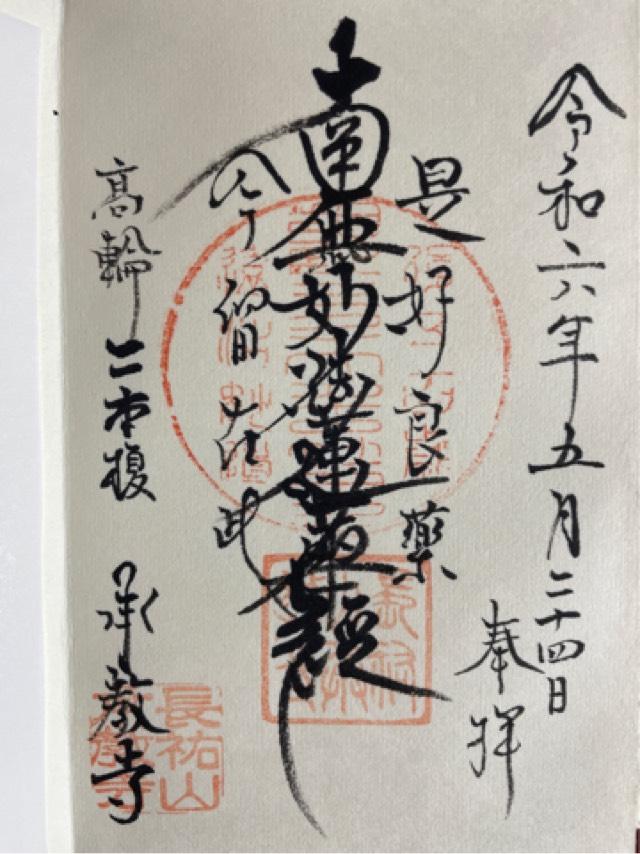 令和六年五月二十四日
奉拝
是好良薬
南無妙法蓮華経
今留在此
高輪二本榎 承教寺
長祐山
承教寺